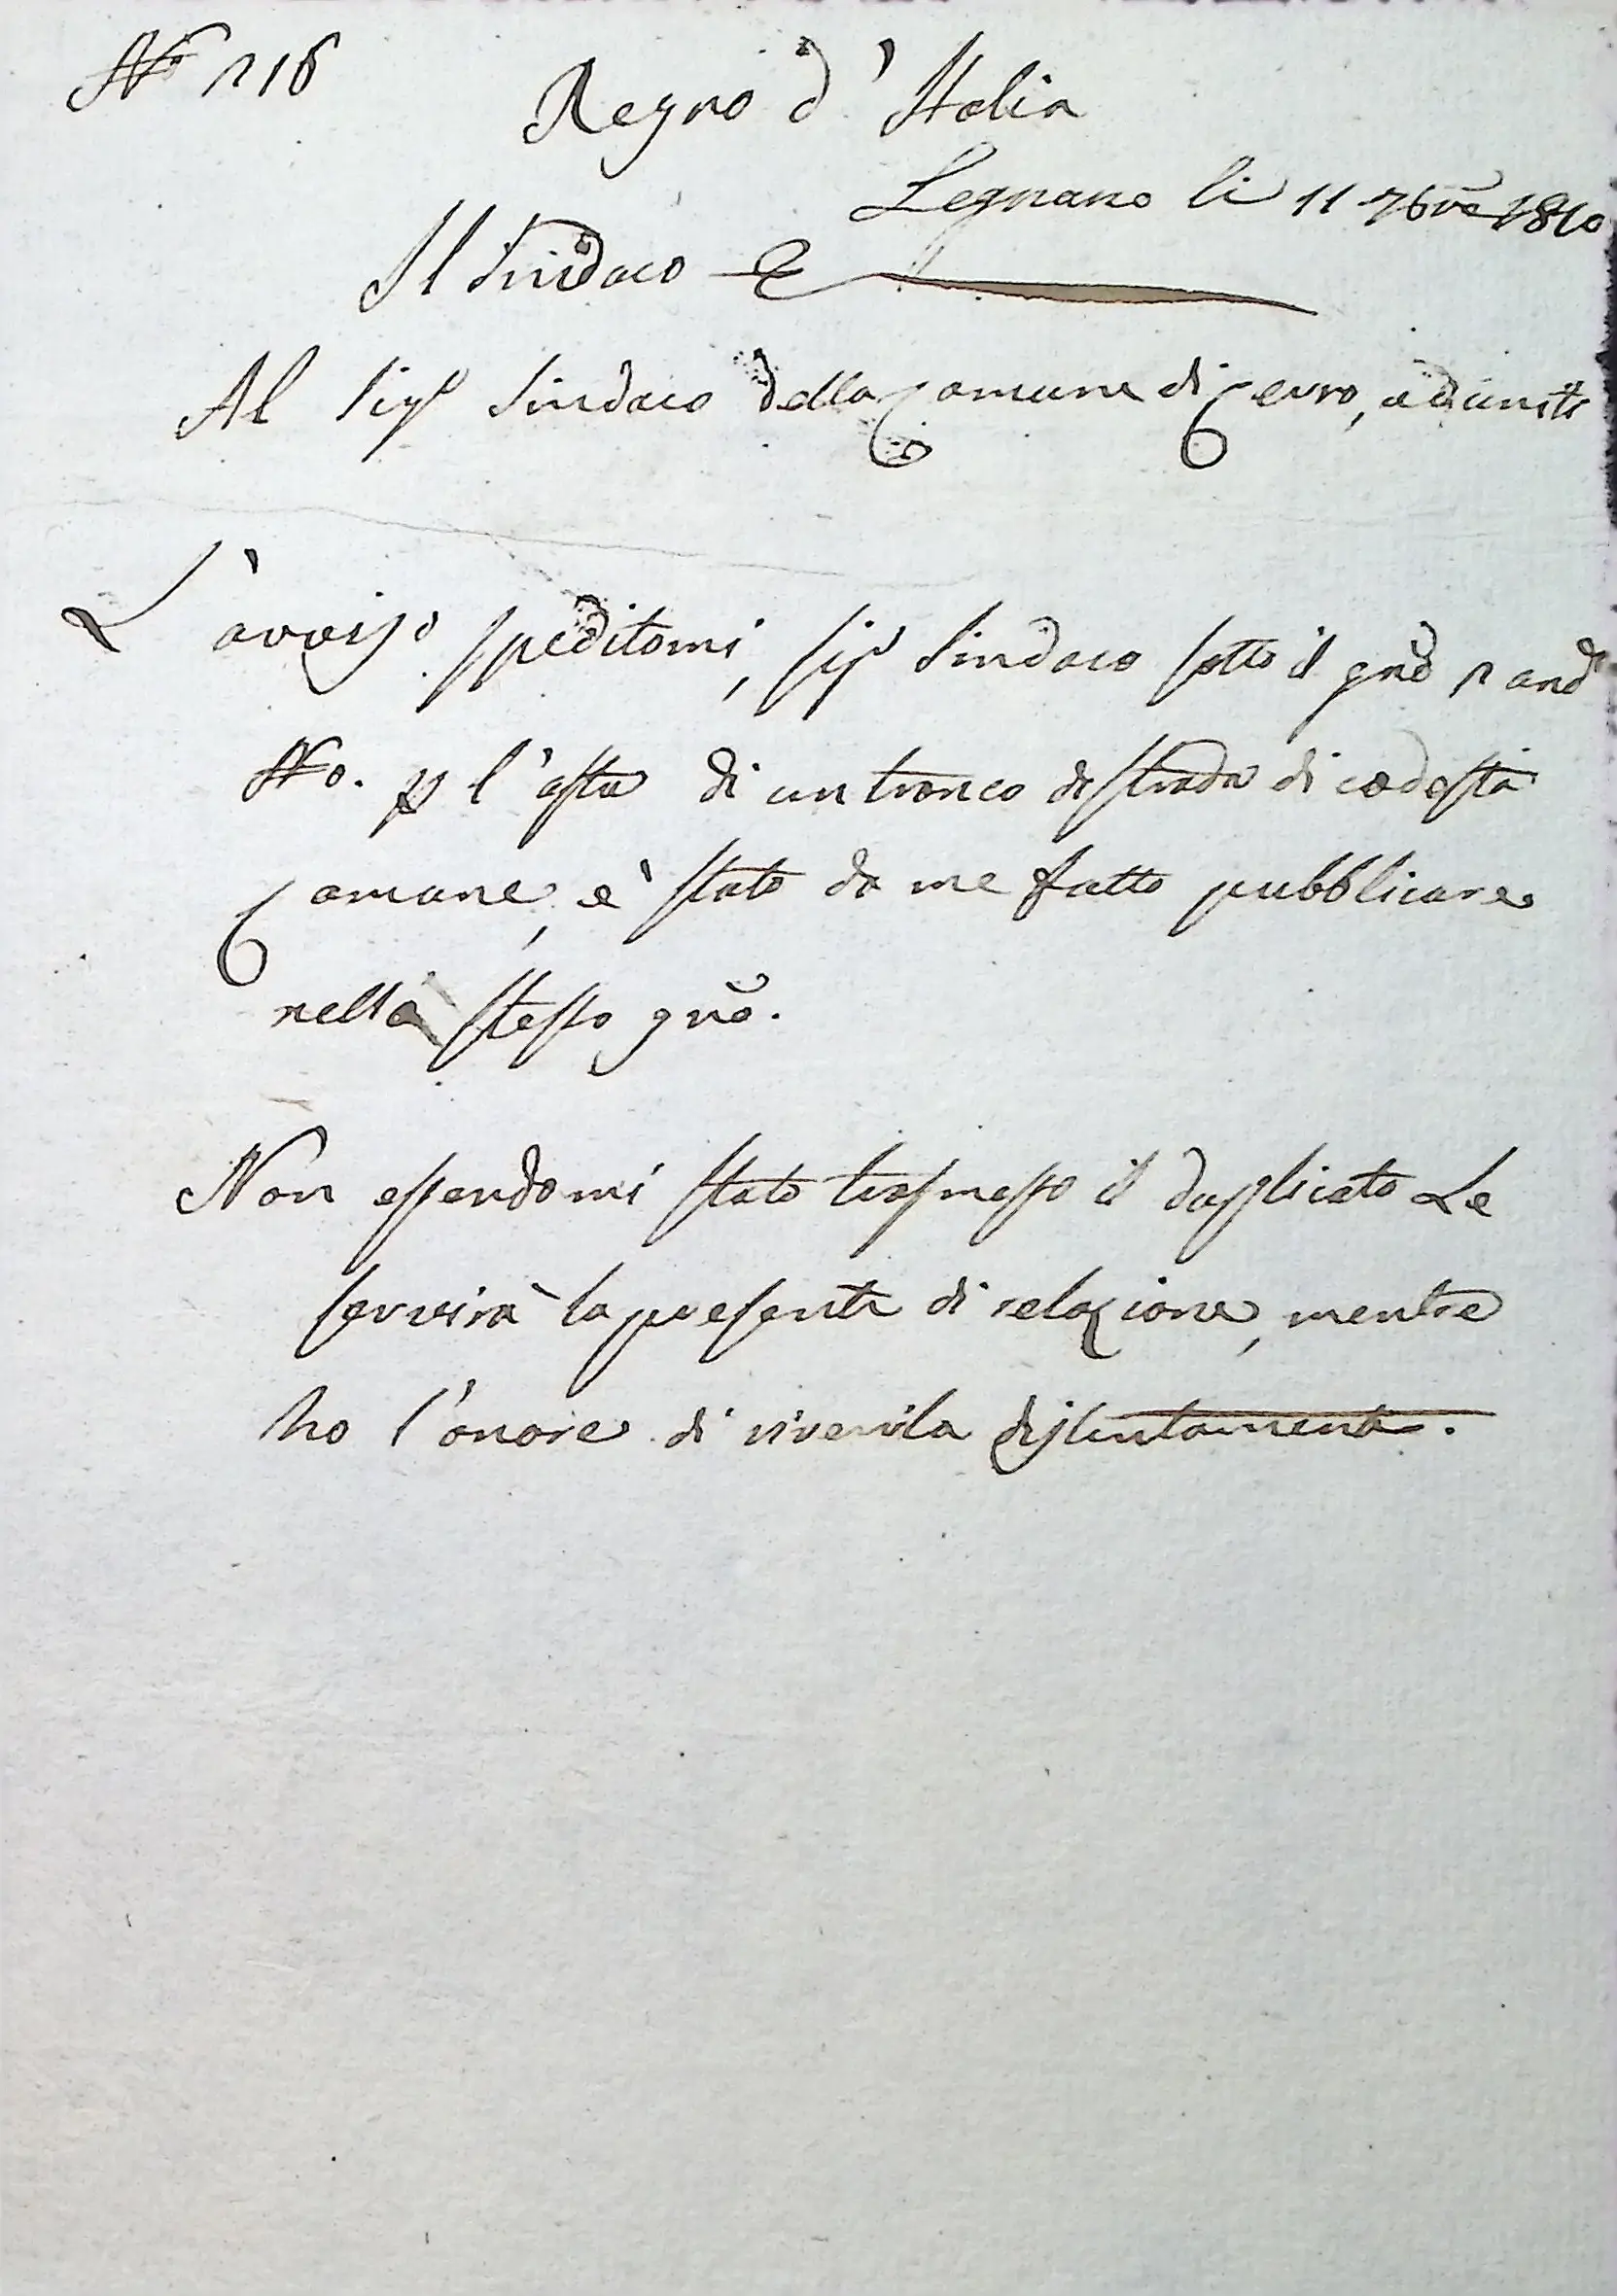 N.o 216
Regno d'Italia
Legnano li 11 7bre 1810
Il Sindaco
Al Sigr Sindaco della Comune di Cerro, ed uniti
L'avviso speditomi, Sigr Sindaco sotto il gno 2 andte
No. p l'asta di un tronco di strada di codesta
Comune, è stato da me fatto pubblicare
nello stesso gno.
Non essendomi stato trasmesso il duplicato Le
servirà la presente di relazione, mentre
ho l'onore di riverirla distintamente.